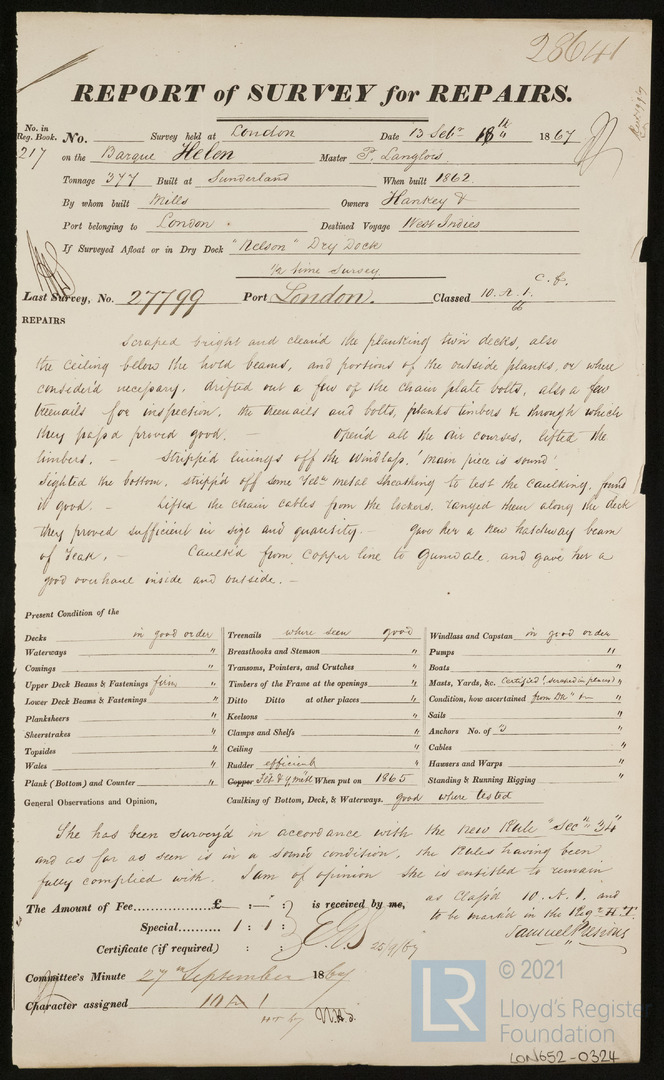 28641
REPORT of SURVEY for REPAIRS.
No. in Reg. Book. No. Survey held at London Date 13 Septr 18th 1867
217 on the Barque Helen Master P. Langlois
Tonnage 377 Built at Sunderland When built 1862
By whom built Mills Owners Hankey &
Port belonging to London. Destined Voyage West Indies
If Surveyed Afloat or in Dry Dock "Nelson" Dry Dock
1/2 time Survey
Last Survey, No. 27799 Port London. Classed 10. A. 1. C. F.
REPAIRS
Scraped bright and clean'd the planking twn decks, also
the ceiling below the hold beams, and portions of the outside planks, or where
consider'd necessary. drifted out a few of the chain plate bolts, also a few
treenails for inspection, the treenails and bolts, planks timbers & through which
they pass'd proved good. — Open'd all the air courses, lifted the
limbers. — Stripp'd linings off the Windlass, 'main piece is sound'.
Sighted the bottom, stripp'd off some Yelw metal sheathing to test the caulking, found
it good. — Lifted the chain cables from the lockers, ranged them along the deck
they proved sufficient in size and quantity. — Gave her a new hatchway beam
of Teak. — Caulk'd from copper line to Gunwale, and gave her a
good overhaul inside and outside. —
Present Condition of the
Decks in good order Treenails where seen good Windlass and Capstan in good order
Waterways " Breasthooks and Stemson " Pumps "
Comings " Transoms, Pointers, and Crutches " Boats "
Upper Deck Beams & Fastenings firm " Timbers of the Frame at the openings " Masts, Yards, &c. Certified (scraped in places) "
Lower Deck Beams & Fastenings " Ditto Ditto at other places " Condition, how ascertained from Dk &c "
Planksheers " Keelsons " Sails "
Sheerstrakes " Clamps and Shelfs " Anchors No. of 3 "
Topsides " Ceiling " Cables "
Wales " Rudder efficient " Hawsers and Warps "
Plank (Bottom) and Counter " Copper Felt & y metl When put on 1865 Standing & Running Rigging "
General Observations and Opinion, Caulking of Bottom, Deck, & Waterways. good where tested
She has been survey'd in accordance with the new Rule "Secn 34"
and as far as seen is in a sound condition, the Rules having been
fully complied with. I am of opinion she is entitled to remain
as Class'd 10. A. 1. and
to be mark'd in the Regr H.T.
The Amount of Fee £ : - : is received by me,
Special 1 : 1 :
Samuel
25/9/67
Certificate (if required) : :
Committee's Minute 27th September 1867
Character assigned 10 A 1
© 2021
LR
Lloyd's Register
Foundation
LON652-0324